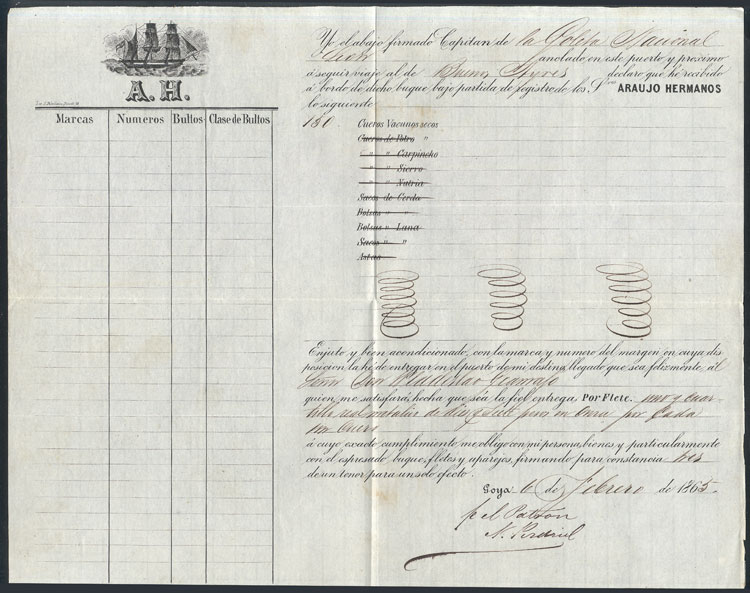 A. H.
Marcas Numeros Bultos Clase de Bultos
Yo el abajo firmado Capitan de la Goleta Nacional
anolado en este puerto y proximo
á seguir viaje al de Buenos Ayres declaro que hé recibido
á bordo de dicho buque bajo partida de registro de los Sres ARAUJO HERMANOS
lo siguiente
150 Cueros Vacunos secos
Cueros de Potro "
" " Carpincho
" " Sierro
" " Nutria
Sacos de Cerda
Bolsas " "
Bolsas " Lana
Sacos " "
Astas
Enjuto y bien acondicionado, con la marca y numero del margen en cuya dis
posicion la hé de entregar en el puerto de mi destino, llegado que sea felizmente, al
Señor Don Uladislao
quien me satisfará, hecha que sea la fiel entrega, Por Flete. uno y cuar
tillo real metalico de diez y siete pesos en Onza por Cada
un Cuero
á cuyo exacto cumplimiento, me obligo con mi persona, bienes, y particularmente
con el espresado buque, fletes y aparejos, firmando para constancia tres
de un tenor para un solo efecto.
Goya 6 de Febrero de 1865.
p el Patron
N.